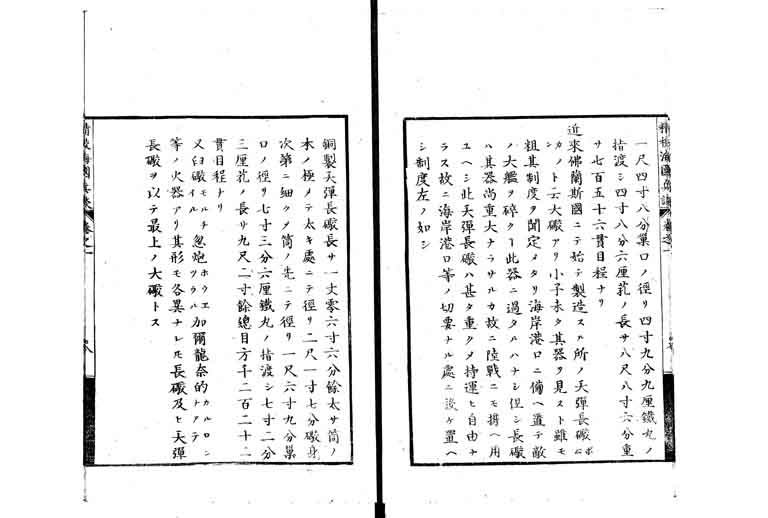 一尺四寸八分巢口ノ徑リ四寸九分九厘鐵丸ノ
指渡シ四寸八分六厘茎ノ長サ八尺八寸六分重
サ七百五十六貫目程ナリ
近來佛蘭斯國ニテ始テ製造スル所ノ天彈長礮ボム
カノント云大礮アリ小子未タ其器ヲ見スト雖モ
粗其制度ヲ聞定メタリ海岸港口ニ備ヘ置テ敵
ノ大艦ヲ碎クヿ此器ニ過タルハナシ但シ長礮
ハ其器尚重大ナラサルカ故ニ陸戰ニモ携ヘ用
ユヘシ此天彈長礮ハ甚タ重クメ持運ヒ自由ナ
ラス故ニ海岸港口等ノ切要ナル處ニ設ケ置ヘ
シ制度左ノ如シ
銅製天彈長礮長サ一丈零六寸六分餘太サ筒ノ
本ノ極メテ太キ處ニテ徑リ二尺一寸七分礮身
次第ニ細クメ筒ノ先ニテ徑リ一尺六寸九分巢
口ノ徑リ七寸三分六厘鐵丸ノ指渡シ七寸二分
三厘茎ノ長サ九尺二寸餘總目方千二百二十二
貫目程ナリ
又臼礮モルチール忽炮ホウエツツル加爾龍奈的カルロンナアテ
等ノ火器アリ其形モ各異ナレモ長礮及ヒ天彈
長礮ヲ以テ最上ノ大礮トス